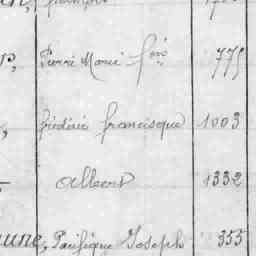 Pierre Marie fçois 775
Frédéric francisque 1003
Albert 1332
aune, Pacifique Joseph 353